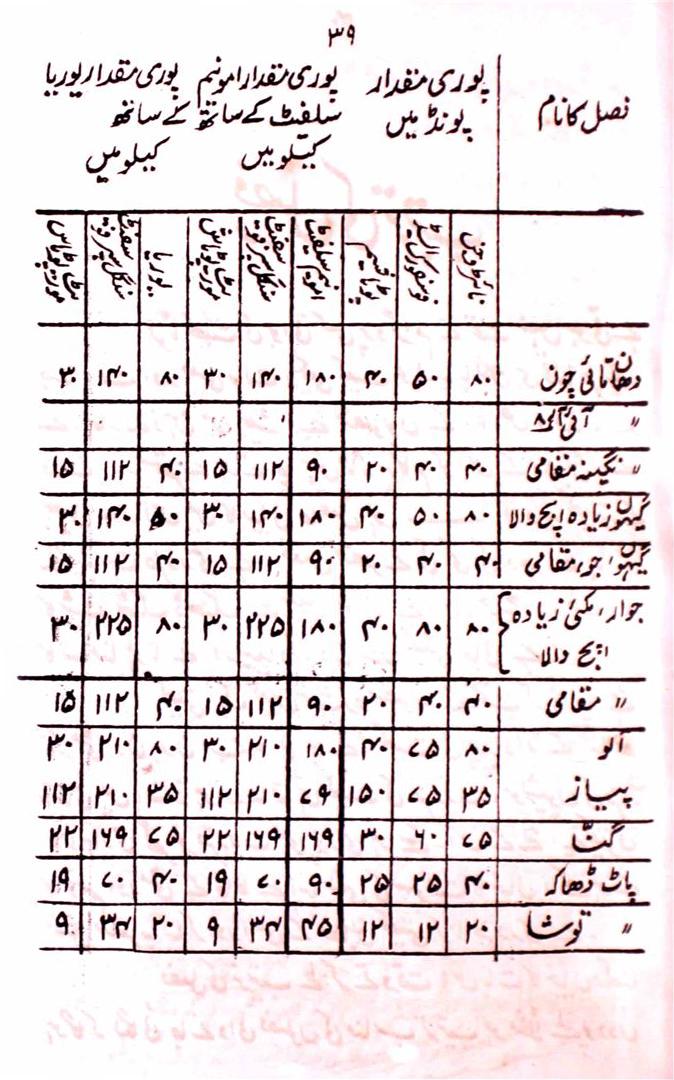 ۳۹
فصل کا نام	پوری مقدار پونڈ میں	پوری مقدار امونیم سلفیٹ کے ساتھ کیلو میں	پوری مقدار یوریا کے ساتھ کیلو میں
نائٹروجن	فوسفورک ایسڈ	پوٹاشیم	امونیم سلفیٹ	سنگل سپر فوسفٹ	موریٹ پوٹاش	یوریا	سنگل سپر فوسفٹ	موریٹ پوٹاس
دھان تائی چون	۸۰	۵۰	۴۰	۱۸۰	۱۴۰	۳۰	۸۰	۱۴۰	۳۰
〃 آئی آر ۸
〃 نگینہ مقامی	۴۰	۴۰	۲۰	۹۰	۱۱۲	۱۵	۴۰	۱۱۲	۱۵
گیہوں زیادہ اپج والا	۸۰	۵۰	۴۰	۱۸۰	۱۴۰	۳۰	۸۰	۱۴۰	۳۰
گیہوں، جو، مقامی	۴۰	۴۰	۲۰	۹۰	۱۱۲	۱۵	۴۰	۱۱۲	۱۵
جوار، مکئی زیادہ
اپج والا	۸۰	۸۰	۴۰	۱۸۰	۲۲۵	۳۰	۸۰	۲۲۵	۳۰
〃 مقامی	۴۰	۴۰	۲۰	۹۰	۱۱۲	۱۵	۴۰	۱۱۲	۱۵
آلو	۸۰	۷۵	۴۰	۱۸۰	۲۱۰	۳۰	۸۰	۲۱۰	۳۰
پیاز	۳۵	۷۵	۱۵۰	۷۹	۲۱۰	۱۱۲	۳۵	۲۱۰	۱۱۲
گنّا	۷۵	۶۰	۳۰	۱۶۹	۱۶۹	۲۲	۷۵	۱۶۹	۲۲
پاٹ ڈھاکہ	۴۰	۲۵	۲۵	۹۰	۷۰	۱۹	۴۰	۷۰	۱۹
〃 توشا	۲۰	۱۲	۱۲	۴۵	۳۴	۹	۲۰	۳۴	۹